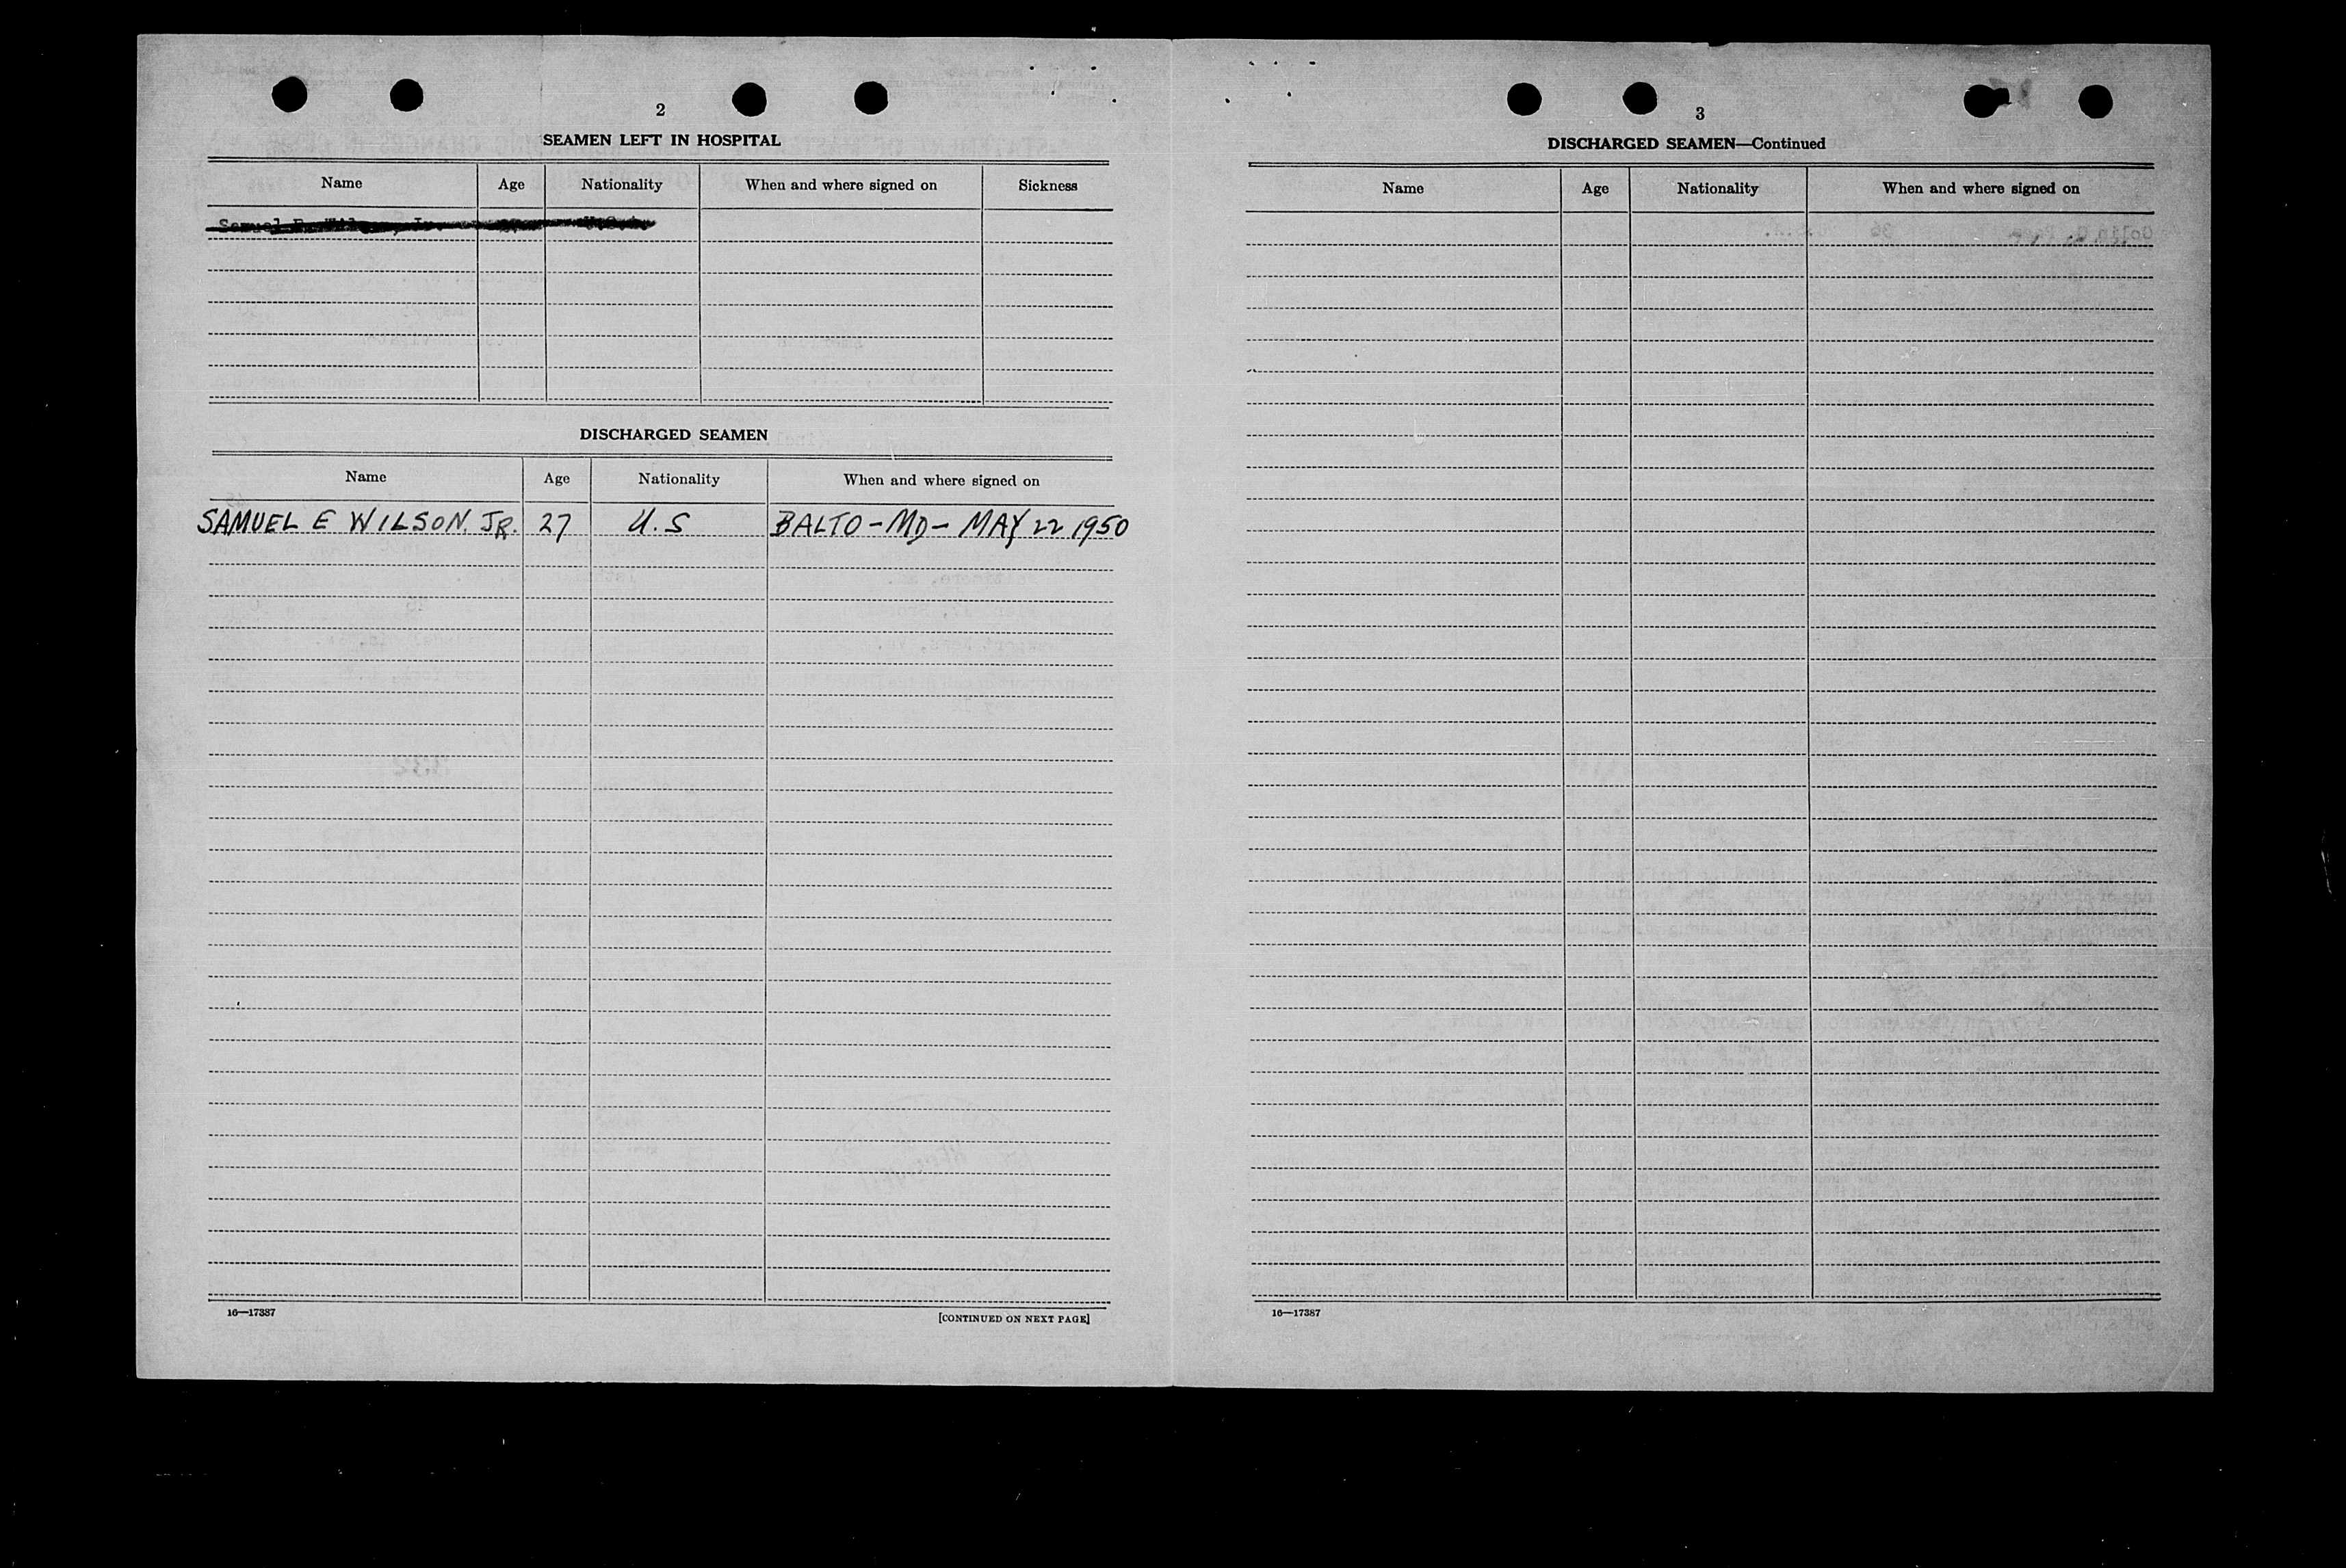 2
SEAMEN LEFT IN HOSPITAL
Name Age Nationality When and where signed on Sickness
Samuel E. Wilson, Jr. U.S.A.
DISCHARGED SEAMEN
Name Age Nationality When and where signed on
SAMUEL E WILSON. JR. 27 U.S BALTO-MD- MAY 22 1950
16—17387
[CONTINUED ON NEXT PAGE]
3
DISCHARGED SEAMEN—Continued
Name Age Nationality When and where signed on
16—17387